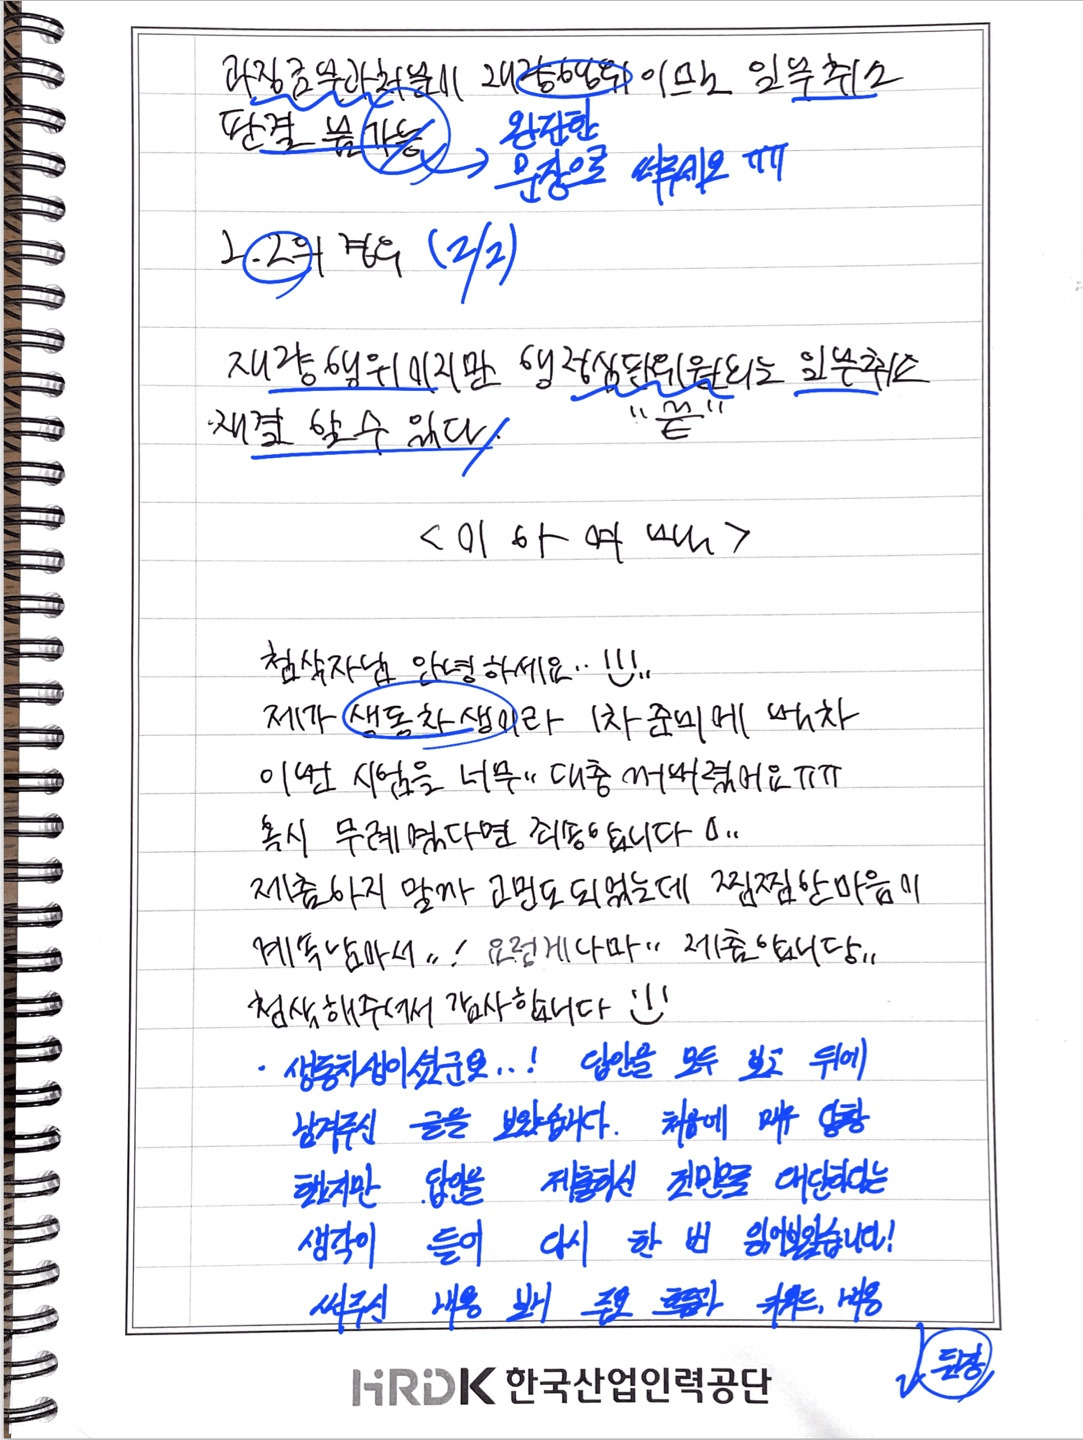 과징금부과처분이 재량행위 이므로 일부취소
판결 불가능
완전한
문장으로 써주세요 ㅠㅠ
2. 2의 경우 (2/2)
재량행위이지만 행정심판위원회는 일부취소
재결 할 수 있다.
"끝"
<이 하 여 백>
첨삭자님 안녕하세요..
제가 생동차생이라 1차 준비에 벅차
이번 시험을 너무.. 대충 써버렸어요ㅠㅠ
혹시 무례했다면 죄송합니다
제출하지 말까 고민도 되었는데 찜찜한 마음이
계속남아서..! 요렇게나마.. 제출합니당..
첨삭해주셔서 감사합니다
· 생동차생이셨군요..! 답안을 모두 보고 뒤에
남겨주신 글을 보았습니다. 처음에 매우 당황
했지만 답안을 제출하신 것만으로 대단하다는
생각이 들어 다시 한 번 읽어보았습니다!
써주신 내용 보니 주요 흐름과 키워드, 내용
뒷장
HRDK 한국산업인력공단